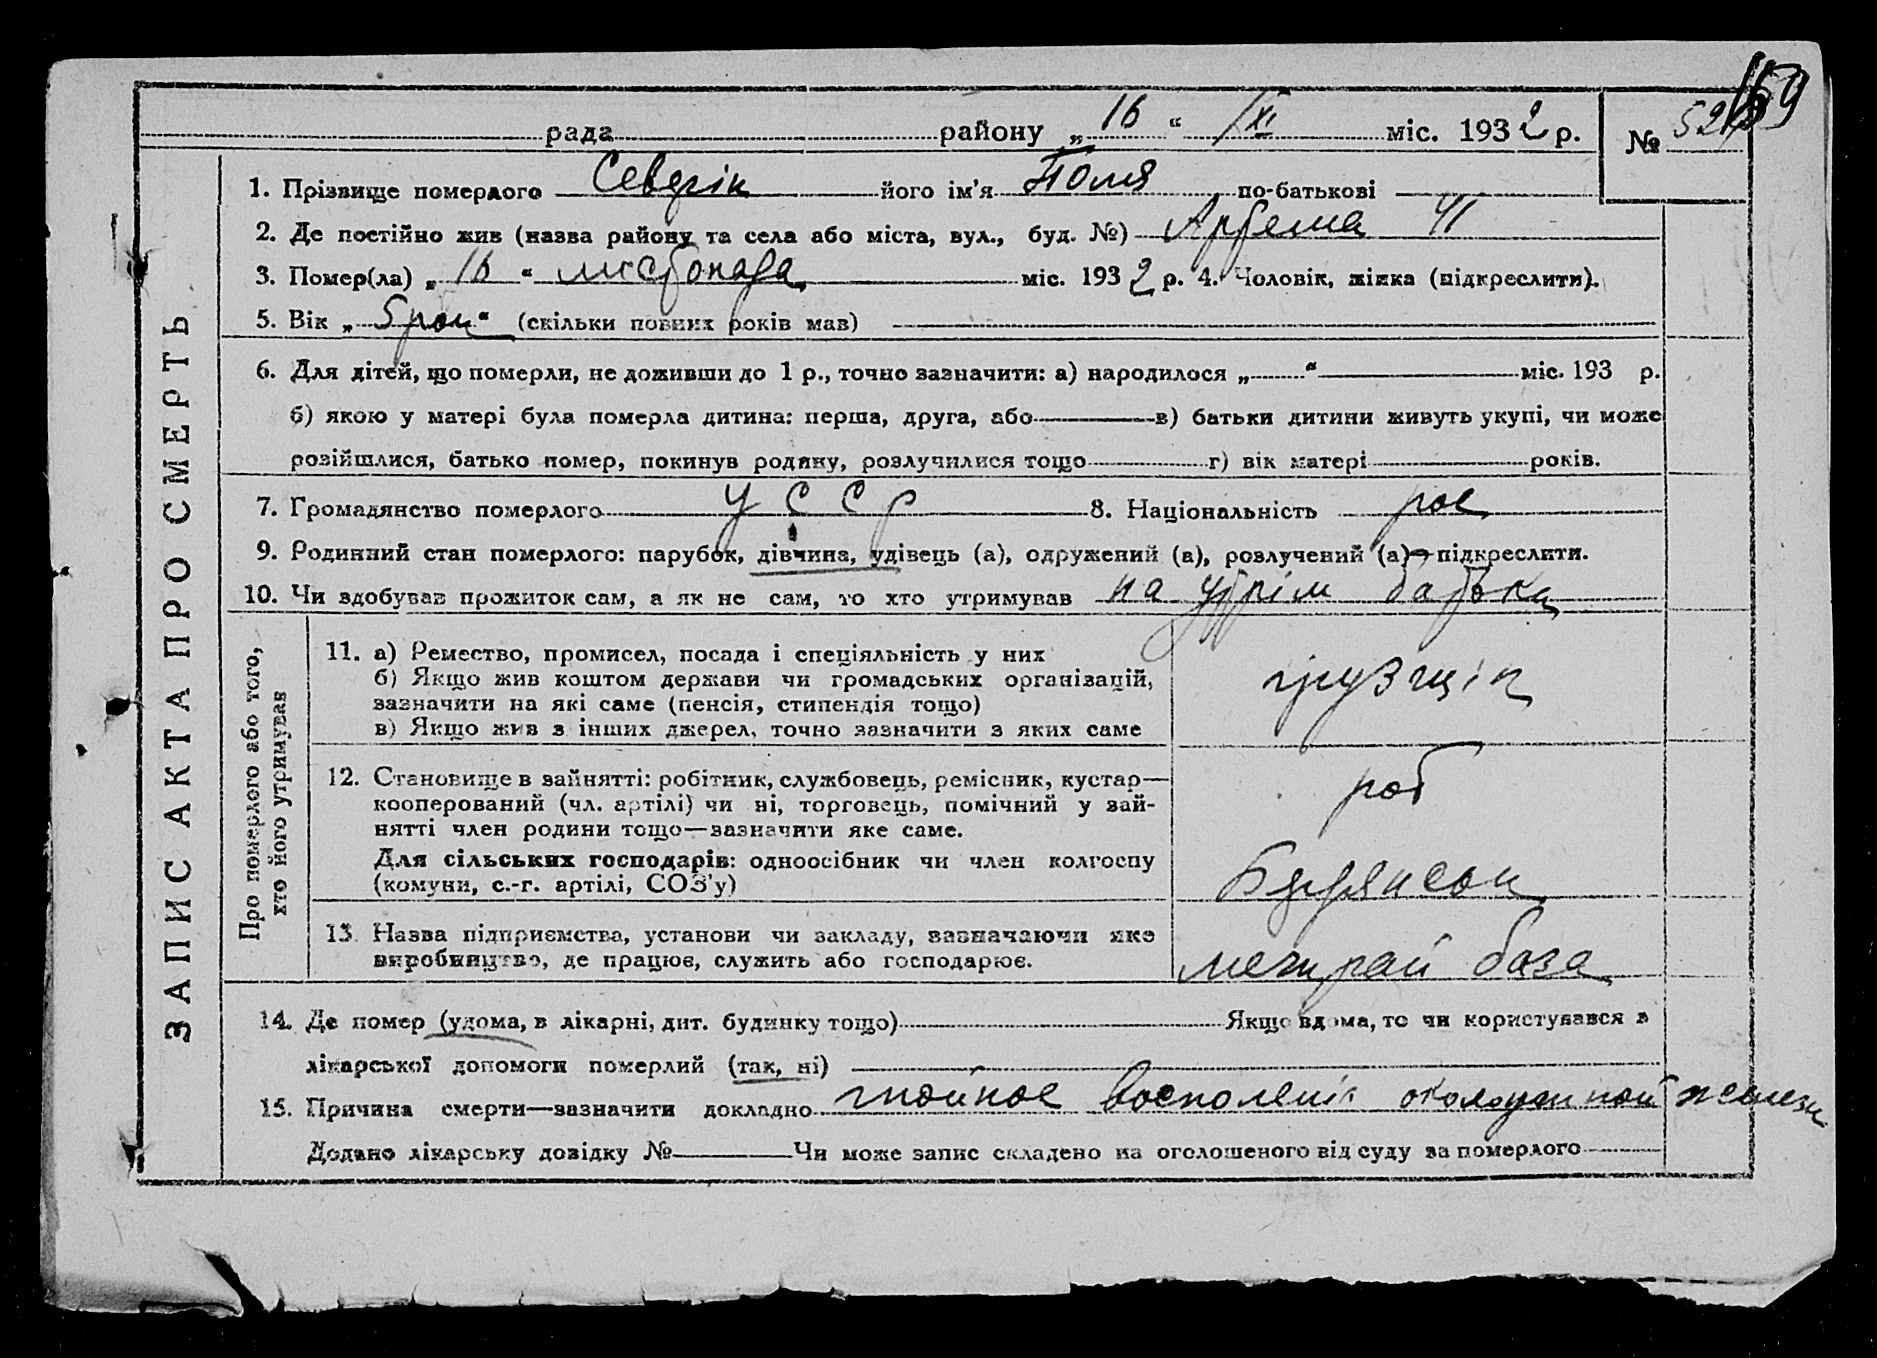 рада району „16“ XI міс. 1932 р. № 52 159
1. Прізвище померлого його ім'я Поля по-батькові
2. Де постійно жив (назва району та села або міста, вул., буд. №) Артема 41
3. Помер(ла) „16“ листопада міс. 1932 р. 4. Чоловік, жінка (підкреслити).
5. Вік „5 рок“ (скільки повних років мав)
6. Для дітей, що померли, не доживши до 1 р., точно зазначити: а) народилося „ “ міс. 193 р.
б) якою у матері була померла дитина: перша, друга, або в) батьки дитини живуть укупі, чи може
розійшлися, батько помер, покинув родину, розлучилися тощо г) вік матері років.
7. Громадянство померлого УССР 8. Національність рос
9. Родинний стан померлого: парубок, дівчина, удівець (а), одружений (а), розлучений (а)—підкреслити.
10. Чи здобував прожиток сам, а як не сам, то хто утримував на утрім батька
ЗАПИС АКТА ПРО СМЕРТЬ
Про померлого або того,
хто його утримував
11. а) Ремество, промисел, посада і спеціяльність у них
б) Якщо жив коштом держави чи громадських організацій,
зазначити на які саме (пенсія, стипендія тощо)
в) Якщо жив з інших джерел, точно зазначити з яких саме
грузчик
12. Становище в зайнятті: робітник, службовець, ремісник, кустар—
кооперований (чл. артілі) чи ні, торговець, помічний у зай-
нятті член родини тощо—зазначити яке саме.
Для сільських господарів: одноосібник чи член колгоспу
(комуни, с.-г. артілі, СОЗ'у)
роб
13. Назва підприємства, установи чи закладу, зазначаючи яке
виробництво, де працює, служить або господарює.
база
14. Де помер (удома, в лікарні, дит. будинку тощо) Якщо вдома, то чи користувався з
лікарської допомоги померлий (так, ні)
15. Причина смерти—зазначити докладно гнойное околоушной железы
Додано лікарську довідку № Чи може запис складено на оголошеного від суду за померлого